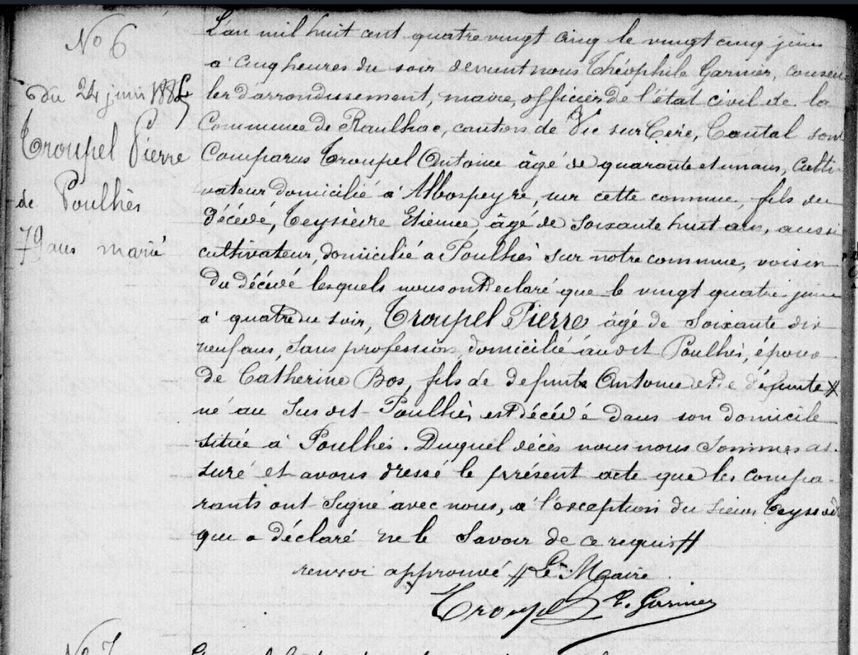 No 6
du 24 juin 1885
Troupel Pierre
de Poulhès
79 ans marié
L'an mil huit cent quatre vingt cinq le vingt cinq juin
à cinq heures du soir devant nous Théophile Garnier, conseil
ler d'arrondissement, maire, officier de l'état civil de la
Commune de Raulhac, canton de Vic sur Cère, Cantal sont
Comparus Troupel Antoine âgé de quarante et un ans, culti
vateur domicilié à Albospeyre, sur cette commune, fils du
décédé, Teyssèdre Etienne, âgé de soixante huit ans, aussi
cultivateur, domicilié à Poulhès sur notre commune, voisin
du décédé lesquels nous ont déclaré que le vingt quatre juin
à quatre du soir, Troupel Pierre âgé de Soixante dix
neuf ans, sans profession domicilié au dit Poulhès, époux
de Catherine Bos, fils de defunts Antoine et de défunte #
né au Susdit Poulhès est décédé dans son domicile
situé à Poulhès. Duquel décès nous nous Sommes as
suré et avons dressé le présent acte que les compa
rants ont Signé avec nous, à l'exception du sieur Teyssèdre
qui a déclaré ne le Savoir de ce requis #
renvoi approuvé # Le Maire
Troupel T. Garnier
No 7